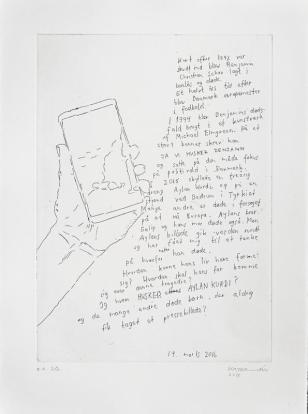 Kort efter 1992 var
skudt tid blev Benjamin
Christian Schou lagt i
benlås og døde.
Et halvt års tid efter
blev Danmark europamester
i fodbold.
I 1994 blev Benjamins døds-
fald brugt i et kunstværk
af Michael Elmgreen. På et
stort banner skrev han
JA VI HUSKER BENJAMIN
og satte på den måde fokus
på politivold i Danmark.
I 2015 skyllede en treårig
dreng Aylan Kurdi op på en
strand ved Bodrum i Tyrkiet
Mange andre er døde i forsøget
på at nå Europa. Aylans bror
Galip og hans mor døde også. Men
Aylans billede gik verden rundt
og har fået mig til at tænke
på hvorfor han døde.
Hvordan kunne hans liv have formet
sig? Hvordan skal hans far komme
sig over denne tragedie?
Og hvem HUSKER AYLAN KURDI?
og de mange andre døde børn, der aldrig
fik taget et pressebillede?
14. marts 2016
2016